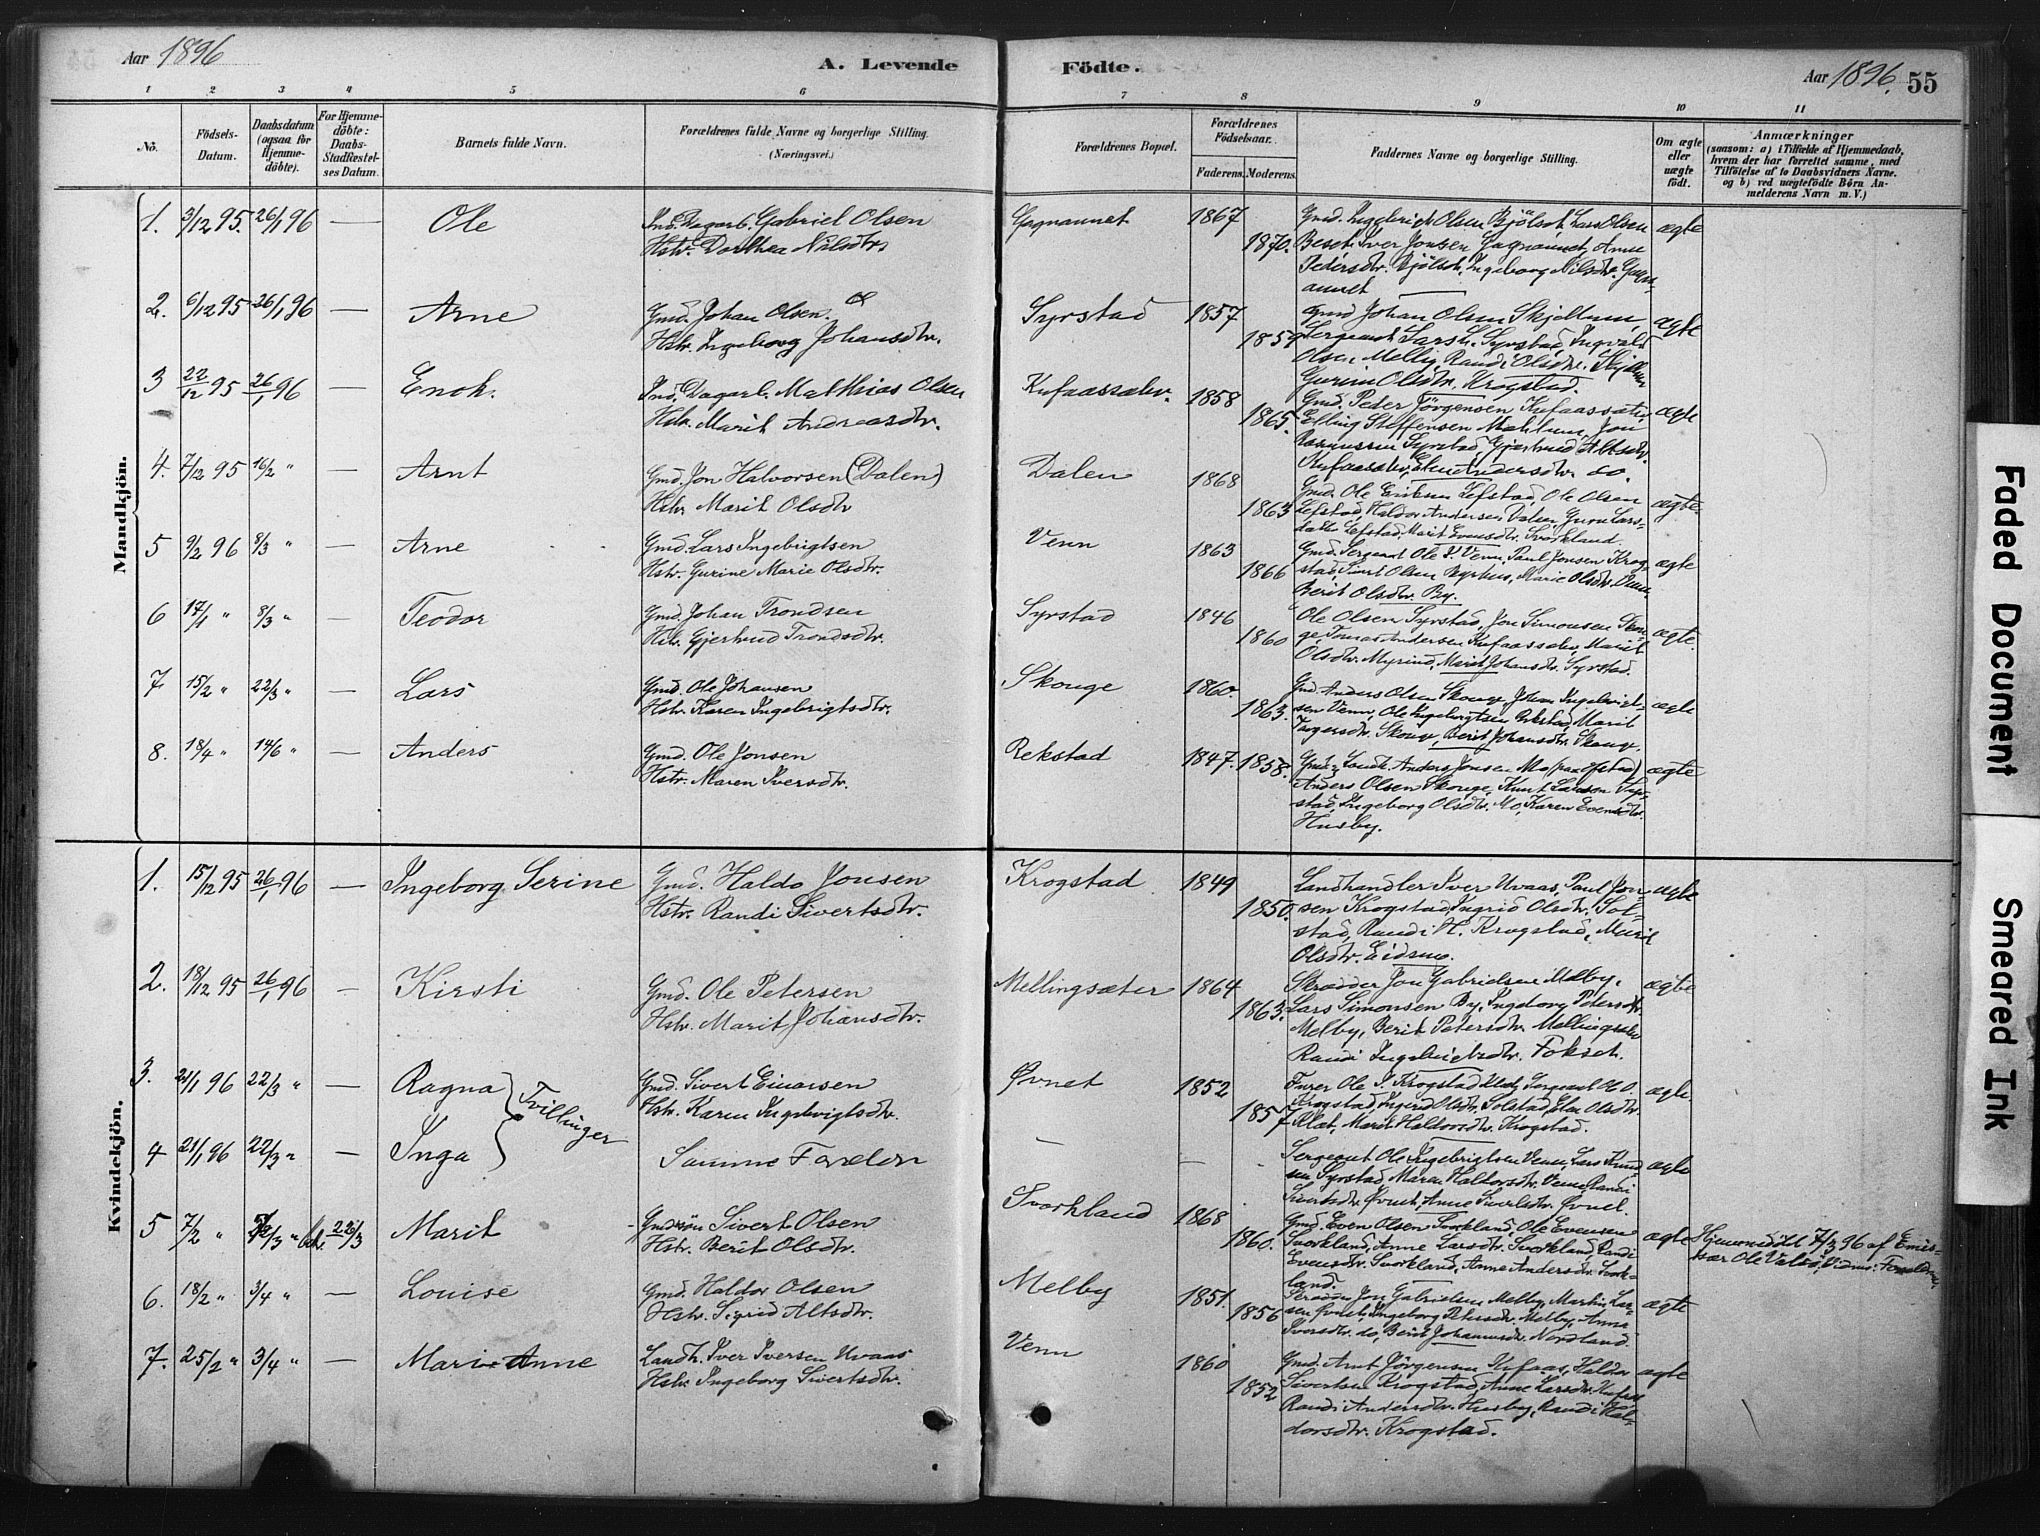 Aar 1896
A. Levende Födte.
Aar 1896. 55
1 2 3 4 5 6 7 8 9 10 11
No.
Födsels-Datum.
Daabsdatum (ogsaa for Hjemme-döbte).
For Hjemme-döbte: Daabs-Stadfæstel-ses Datum.
Barnets fulde Navn.
Forældrenes fulde Navne og borgerlige Stilling.
(Næringsvei.)
Forældrenes Bopæl.
Forældrenes Födselsaar.
Faderens. Moderens.
Faddernes Navne og borgerlige Stilling.
Om ægte eller uægte födt.
Anmærkninger
(saasom: a) i Tilfælde af Hjemmedaab,
hvem der har forrettet samme, med
Tilföielse af to Daabsvidners Navne.
og b) ved uægtefödte Börn An-
melderens Navn m. V.)
Mandkjön.
1. 3/12 95. 26/1 96 — Ole
Ind. Dagarb. Gabriel Olsen
Hstr. Dorthea Nilsdtr.
1867
1870.
Gmd. Olsen Lars Olsen
Iver Jonsen Anne
Pedersdtr. Ingeborg Nilsdtr.
ægte
2. 6/12 95 26/1 96 — Arne
Gmd. Johan Olsen.
Hstr. Ingeborg Johansdtr.
Syrstad 1857
1859
Gmd Johan Olsen Skjellum,
Sergeant Lars Syrstad, Ingvald
Olsen Melby, Randi Olsdtr.
Gurine Olsdtr. Krogstad.
ægte
3 22/12 95 26/1 96 — Enok.
Ind. Dagarb. Matthias Olsen
Hstr. Marit Andreasdtr.
Kufaassæter. 1858
1865.
Gmd. Peder Jörgensen Kufaassæter,
Elling Steffensen Mælum, Jon
Rasmussen Syrstad, Gjertrud
Kufaassæter, Andersdtr. do.
ægte
4. 7/12 95 16/2 " — Arnt
Gmd. Jon Halvorsen (Dalen)
Hstr. Marit Olsdtr
Dalen 1868
1863
Gmd. Ole Eriksen Lefstad, Ole Olsen
Lefstad, Haldor Andersen Dalen, Guru Lars-
datter Lefstad, Marit Evensdtr. Svorkland.
ægte.
5 9/2 96 8/3 " — Arne
Gmd. Lars Ingebrigtsen
Hstr. Gurine Marie Olsdtr.
Venn 1863
1866
Gmd. Sergeant Ole Venn, Paul Jonsen Krog-
stad, Sivert Olsen Byrhus, Marie Olsdtr.
Berit Olsdtr. By.
ægte
6 17/1 " 8/3 " — Teodor
Gmd. Johan Trondsen
Hstr. Gjertrud Trondsdtr.
Syrstad 1846
1860
Ole Olsen Syrstad, Jon Simonsen Skou-
ge, Tomas Andersen Kufaassæter, Marit
Olsdtr. Marit Johansdtr. Syrstad.
ægte.
7 15/2 " 22/3 " — Lars
Gmd. Ole Johansen
Hstr. Karen Ingebrigtsdtr.
Skouge 1860.
1863.
Gmd. Anders Olsen Skouge, Johan Ingebrigt-
sen Venn, Ole Ingebrigtsen Rekstad, Marit
Skouge, Berit Johansdtr. Skouge.
ægte
8. 18/4 " 14/6 " — Anders
Gmd. Ole Jonsen
Hstr. Maren Iversdtr.
Rekstad 1847. 1858.
Anders Jonsen Mo
Anders Olsen Skouge, Knut Larsen Syr-
stad, Ingeborg Olsdtr. Mo, Karen Evensdtr.
Husby.
ægte
Kvindekjön.
1. 15/12 95 26/1 96 — Ingeborg Serine
Gmd. Haldo Jonsen
Hstr. Randi Sivertsdtr.
Krogstad 1849
1850.
Landhandler Iver Uvaas, Paul Jon-
sen Krogstad, Ingrid Olsdtr. Sol-
stad, Randi H. Krogstad, Marit
Olsdtr. Eidsmo.
ægte
2. 18/12 95 26/1 96 — Kirsti
Gmd. Ole Petersen
Hstr. Marit Johansdtr.
Mellingsæter 1864
1863.
Skrædder Jon Gabrielsen Melby,
Lars Simonsen By, Ingeborg Petersdtr.
Melby, Berit Petersdtr. Mellingsæter
Randi Ingebrigtsdtr. Fokset.
ægte
3. 21/1 96 22/3 " — Ragna
Tvillinger
Gmd. Sivert Einarsen
Hstr. Karen Ingebrigtsdtr.
Øvnet 1852
1857
Furer Ole Krogstad Klæt, Sergeant O. O.
Krogstad, Ingrid Olsdtr. Solstad, Elen Olsdtr.
Klæt, Marit Haldorsdtr. Krogstad.
ægte.
4 21/1 96 22/3 " — Inga
Samme Forældre
— —
Sergeant Ole Ingebrigtsen Venn, Lars Knud-
sen Syrstad, Maren Haldorsdtr. Venn, Randi
Sivertsdtr. Øvnet, Anne Sivertsdtr. Øvnet.
ægte
5 7/2 " 22/3 Marit
Gmdssön Sivert Olsen
Hstr. Berit Olsdtr.
Svorkland 1868
1860.
Gmd. Even Olsen Svorkland, Ole Evensen
Svorkland, Anne Larsdtr. Svorkland, Randi
Evensdtr. Svorkland, Anne Andersdtr. Svork-
land.
ægte
Hjemmedöbt 7/3 96 af Emis-
sær Ole Valsö, Vidner: Forældrene
6. 18/2 " 3/4 " — Louise
Gmd. Haldor Olsen
Hstr. Sigrid Altsdtr.
Melby 1851.
1856
Skrædder Jon Gabrielsen Melby, Martin Lar-
sen Øvnet, Ingeborg Petersdtr. Melby, Anne
Iversdtr. do, Berit Johannesdtr. Nordland.
ægte
7. 25/2 " 3/4 " — Marie Anne
Landh. Iver Iversen Uvaas
Hstr. Ingeborg Sivertsdtr.
Venn 1860
1852
Gmd. Arnt Jörgensen Kufaas, Haldor
Sivertsen Krogstad, Anne Larsdtr. Kufaas
Randi Andersdtr. Husby, Randi Hal-
dorsdtr. Krogstad.
ægte
Faded Document
Smeared Ink